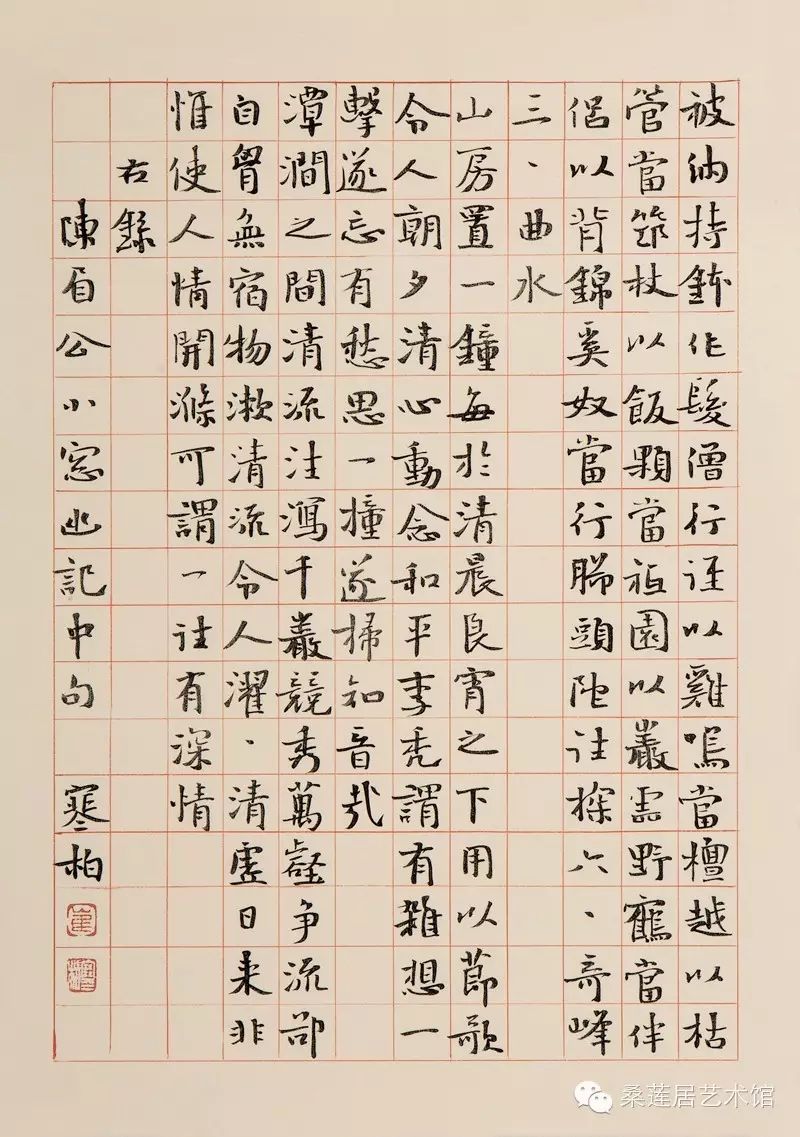 被衲持鉢作髮僧行徑以雞鳴當檀越以枯
管當筇杖以飯顆當祗園以巖雲野鶴當伴
侶以背錦奚奴當行腳頭陀往探六、奇峰
三、曲水
山房置一鐘每於清晨良宵之下用以節歌
令人朝夕清心動念和平李禿謂有雜想一
擊遂忘有愁思一撞遂掃知音哉
潭澗之間清流注瀉千巖競秀萬壑爭流卻
自胷無宿物漱清流令人濯、清虛日來非
惟使人情開滌可謂一往有深情
右錄
陳眉公小窓幽記中句 寒柏
桑莲居艺术馆